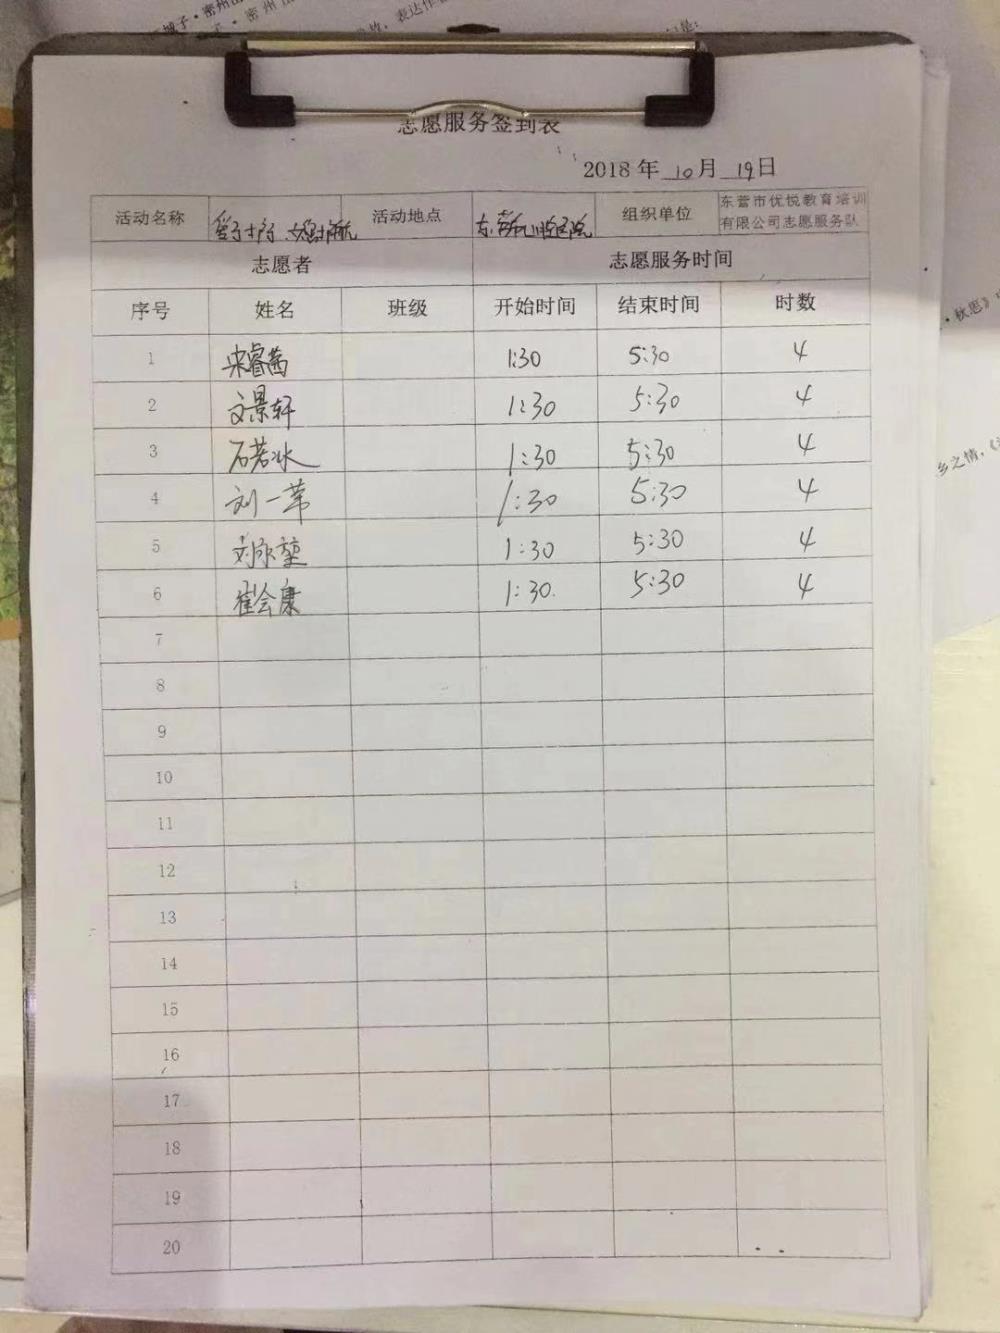 志愿服务签到表
2018 年 10 月 19 日
活动名称 活动地点 组织单位 东营市优悦教育培训有限公司志愿服务队
志愿者 志愿服务时间
序号 姓名 班级 开始时间 结束时间 时数
1 宋睿茜 1:30 5:30 4
2 文景轩 1:30 5:30 4
3 石若冰 1:30 5:30 4
4 刘一苇 1:30 5:30 4
5 1:30 5:30 4
6 崔会康 1:30. 5:30 4
7
8
9
10
11
12
13
14
15
16
17
18
19
20